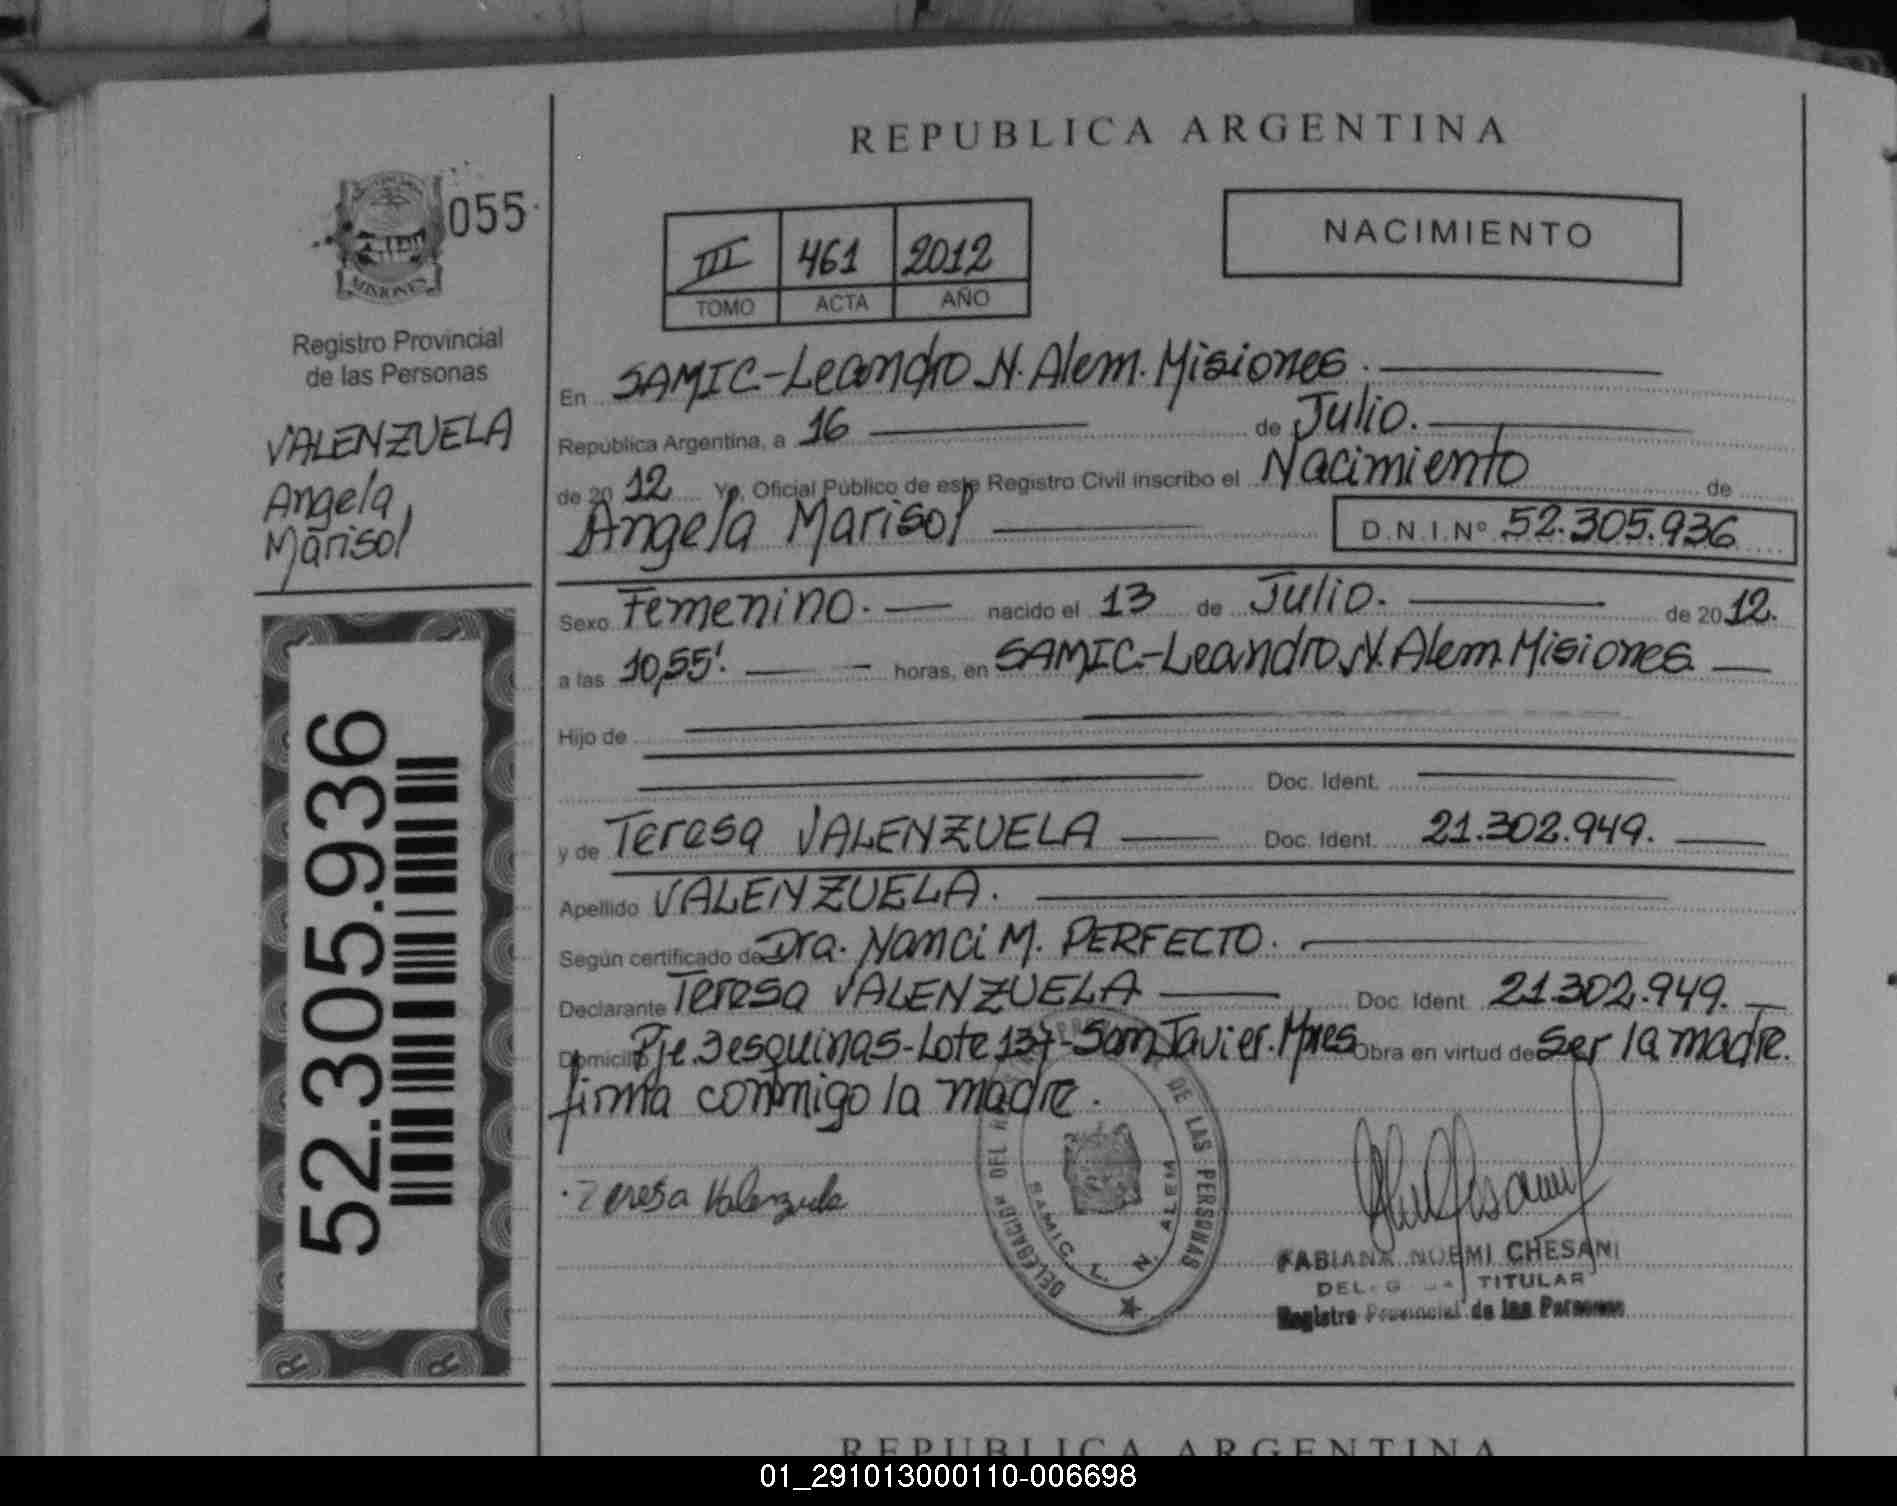 REPUBLICA ARGENTINA
MISIONES
055
Registro Provincial
de las Personas
VALENZUELA
Angela
Marisol
52.305.936
III 461 2012
TOMO ACTA AÑO
NACIMIENTO
En SAMIC-Leandro N. Alem. Misiones.
República Argentina, a 16 de Julio.
de 2012 Yo, Oficial Público de este Registro Civil inscribo el Nacimiento de
Angela Marisol D.N.I.Nº 52.305.936
Sexo Femenino. nacido el 13 de Julio. de 2012.
a las 10,55'. horas, en SAMIC-Leandro N. Alem. Misiones
Hijo de
Doc. Ident.
y de Teresa VALENZUELA Doc. Ident. 21.302.949.
Apellido VALENZUELA.
Según certificado de Dra. Nanci M. PERFECTO.
Declarante Teresa VALENZUELA Doc. Ident. 21.302.949.
Domicilio Pje. 3 esquinas-Lote 137-San Javier. Mnes Obra en virtud de Ser la madre.
firma conmigo la madre.
Teresa Valenzuela
DELEGACION DEL DE LAS PERSONAS
SAMIC. L. N. ALEM
FABIANA NOEMI CHESANI
TITULAR
Registro Provincial de las Personas
REPUBLICA ARGENTINA
01_291013000110-006698